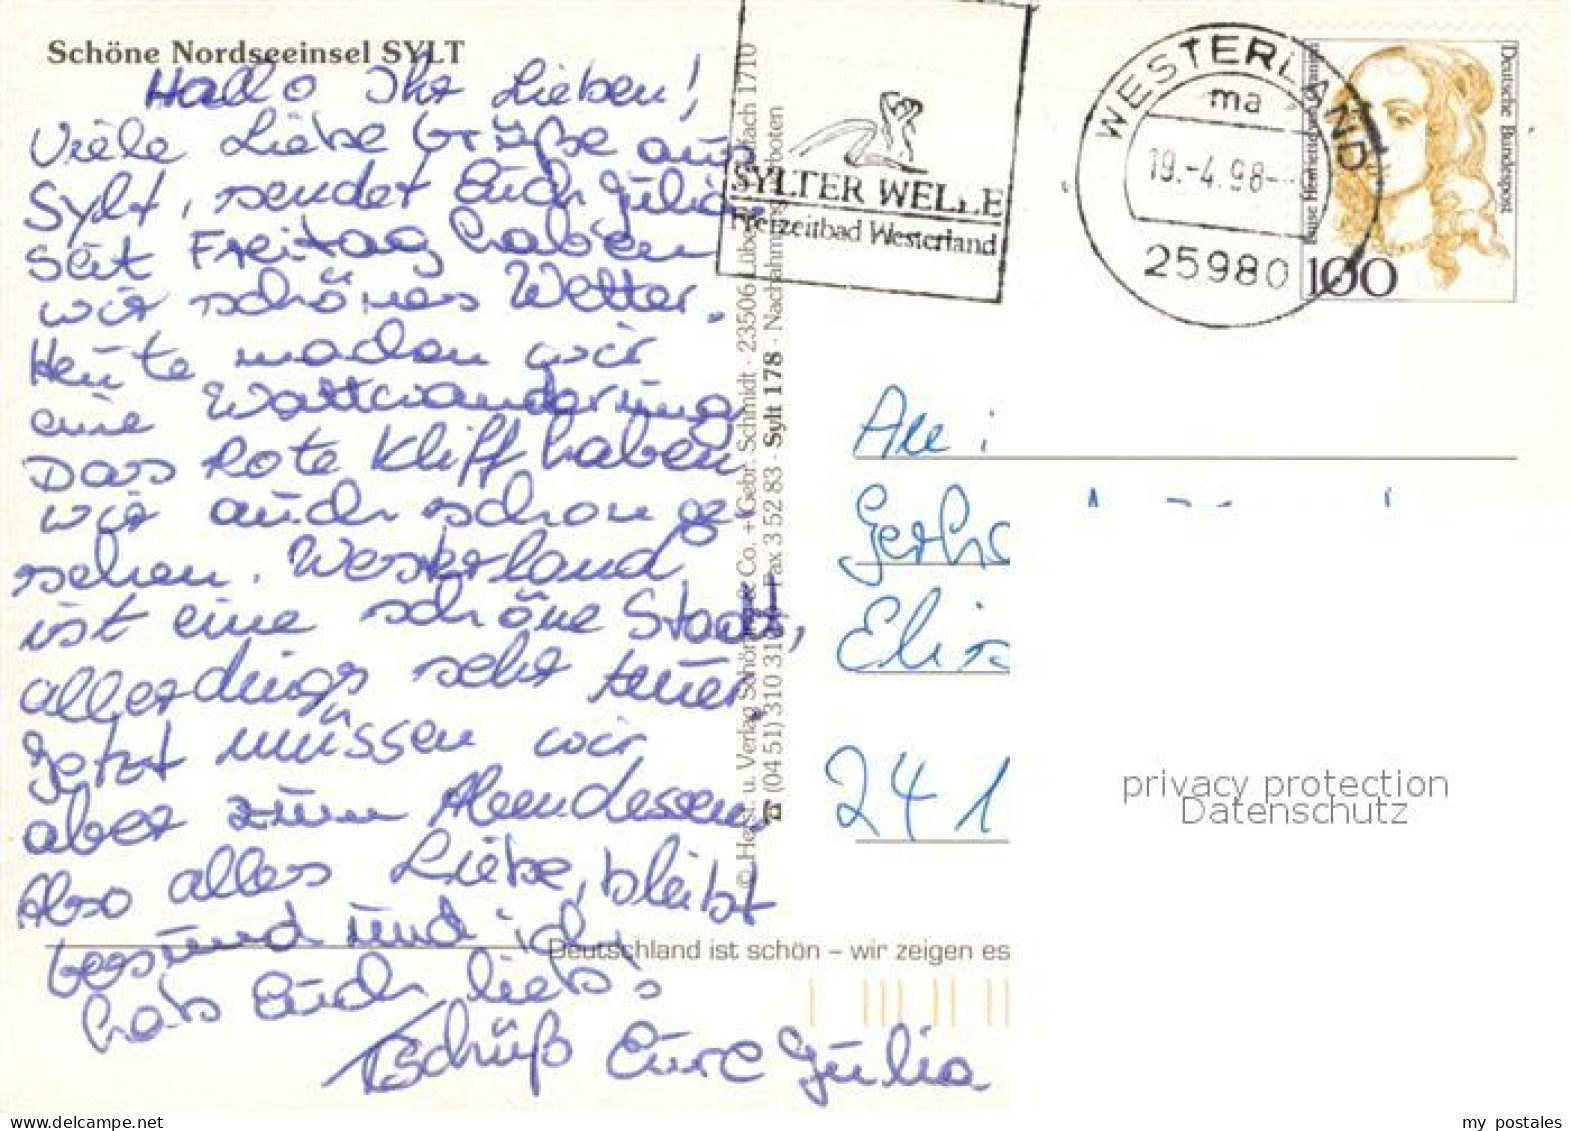 Schöne Nordseeinsel SYLT
Hallo Ihr Lieben!
Viele Liebe Grüße aus
Sylt, sendet Euch Julia.
Seit Freitag haben
wir schönes Wetter.
Heute machen wir
eine Wattwanderung
Das Rote Kliff haben
wir auch schon ge-
sehen. Westerland
ist eine schöne Stadt,
allerdings sehr teuer.
Jetzt müssen wir
aber zum Abendessen
Also alles Liebe, bleibt
gesund und ich
hab Euch lieb!
Tschüß Eure Julia
© Herst. u. Verlag Schöning & Co. + Gebr. Schmidt · 23506 Lübeck
fach 1710
(04 51) 310 31 Fax 3 52 83 · Sylt 178 · Nachahmung verboten
SYLTER WELLE
Freizeitbad Westerland
WESTERLAND
ma
19.-4.98
25980
Deutsche Bundespost
100
An:
Gerh
Elis
24 1
Deutschland ist schön – wir zeigen es
privacy protection
Datenschutz
my postales